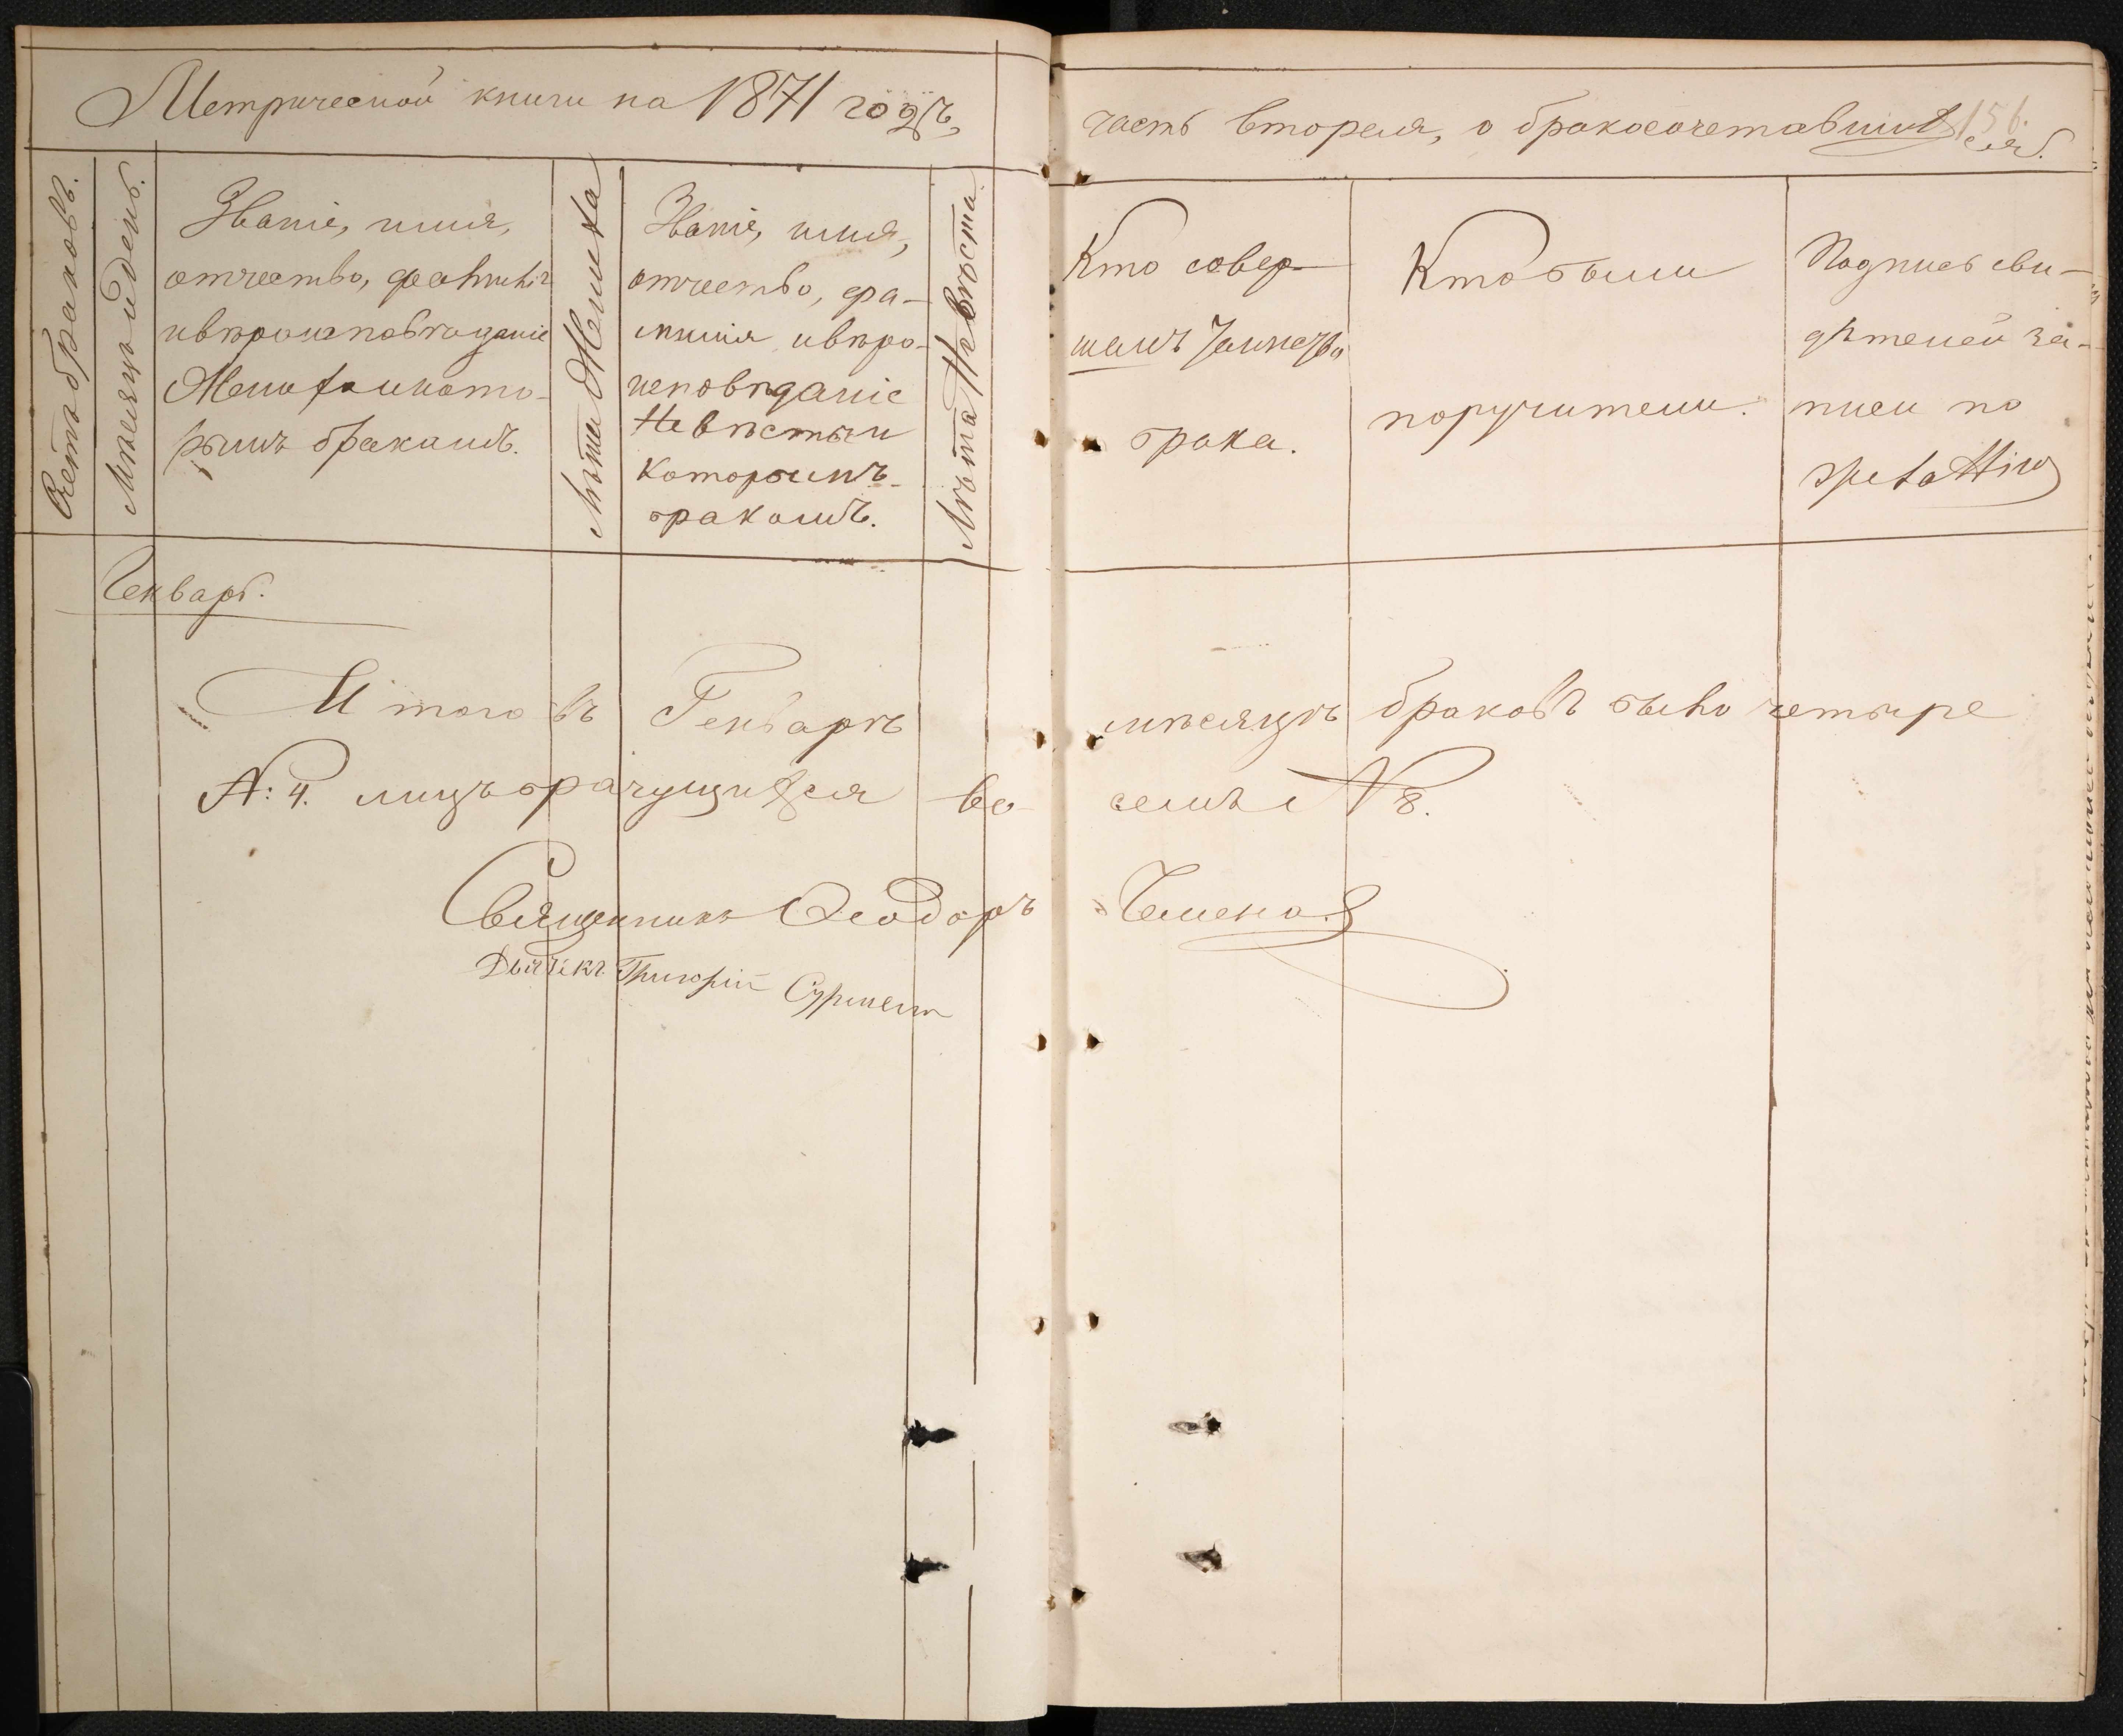 Метрической книги на 1871 годъ,
часть вторая, о бракосочетавшихся.
156.
Счетъ браковъ.
Мѣсяцъ и день.
Званіе, имя,
отчество, фамилія
и вѣроисповѣданіе
Жениха и кото-
рымъ бракомъ.
Лѣта Жениха
Званіе, имя,
отчество, фа-
милія и вѣро-
исповѣданіе
Невѣсты и
которымъ-
бракомъ.
Лѣта Невѣсты
Кто совер-
шалъ Таинство
брака.
Кто были
поручители.
Подпись сви-
дѣтелей за-
писи по
желанію
Генварь.
Итого въ Генварѣ мѣсяцѣ браковъ было четыре
№: 4. лицъ брачущихся во семь № 8.
Священникъ Ѳеодоръ
Дьячекъ Григорій